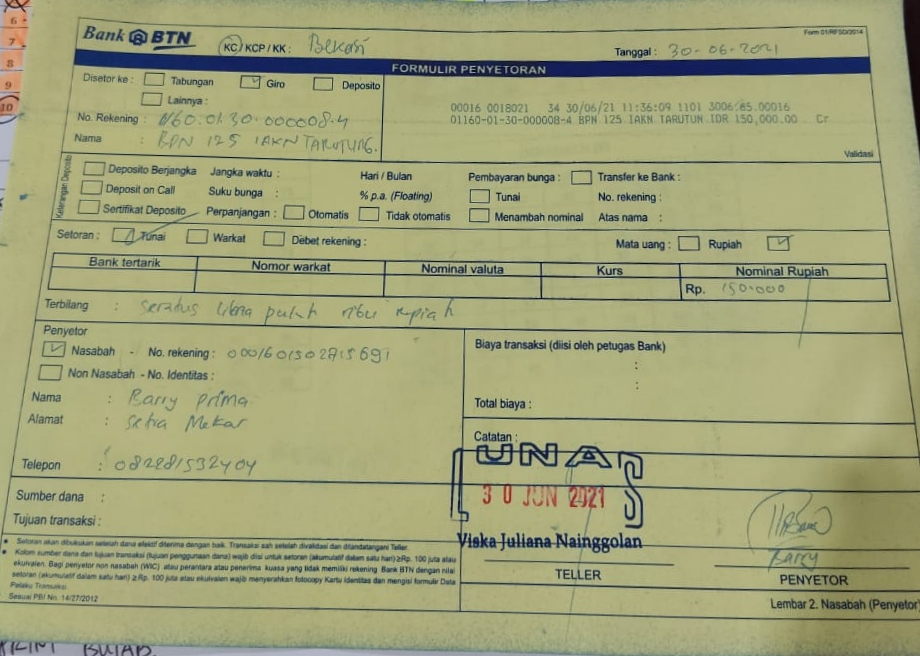 6
7
8
9
10
Form 01/RFSD/2014
Bank BTN KC / KCP / KK : Bekasi Tanggal : 30-06-2021
FORMULIR PENYETORAN
Disetor ke : Tabungan Giro Deposito
Lainnya :
00016 0018021 34 30/06/21 11:36:09 1101 3006:65.00016
01160-01-30-000008-4 BPN 125 IAKN TARUTUN IDR 150,000.00 Cr
No. Rekening : 1160.01.30.000008.4
Nama : BPN 125 IAKN TARUTUNG.
Validasi
Keterangan Deposito
Deposito Berjangka Jangka waktu : Hari / Bulan Pembayaran bunga : Transfer ke Bank :
Deposit on Call Suku bunga : % p.a. (Floating) Tunai No. rekening :
Sertifikat Deposito Perpanjangan : Otomatis Tidak otomatis Menambah nominal Atas nama :
Setoran : Tunai Warkat Debet rekening : Mata uang : Rupiah
Bank tertarik Nomor warkat Nominal valuta Kurs Nominal Rupiah
Rp. 150.000
Terbilang : seratus lima puluh ribu rupiah
Penyetor
Nasabah - No. rekening : 0001601502715691
Non Nasabah - No. Identitas :
Nama : Barry Prima
Alamat : Setia Mekar
Telepon : 082281532404
Sumber dana :
Tujuan transaksi :
Biaya transaksi (diisi oleh petugas Bank)
:
:
Total biaya :
Catatan :
LUNAS
30 JUN 2021
Viska Juliana Nainggolan
TELLER
Barry
PENYETOR
Setoran akan dibukukan setelah dana efektif diterima dengan baik. Transaksi sah setelah divalidasi dan ditandatangani Teller.
Kolom sumber dana dan tujuan transaksi (tujuan penggunaan dana) wajib diisi untuk setoran (akumulatif dalam satu hari) ≥Rp. 100 juta atau
ekuivalen. Bagi penyetor non nasabah (WIC) atau perantara atau penerima kuasa yang tidak memiliki rekening Bank BTN dengan nilai
setoran (akumulatif dalam satu hari) ≥ Rp. 100 juta atau ekuivalen wajib menyerahkan fotocopy Kartu Identitas dan mengisi formulir Data
Pelaku Transaksi.
Sesuai PBI No. 14/27/2012
Lembar 2. Nasabah (Penyetor)